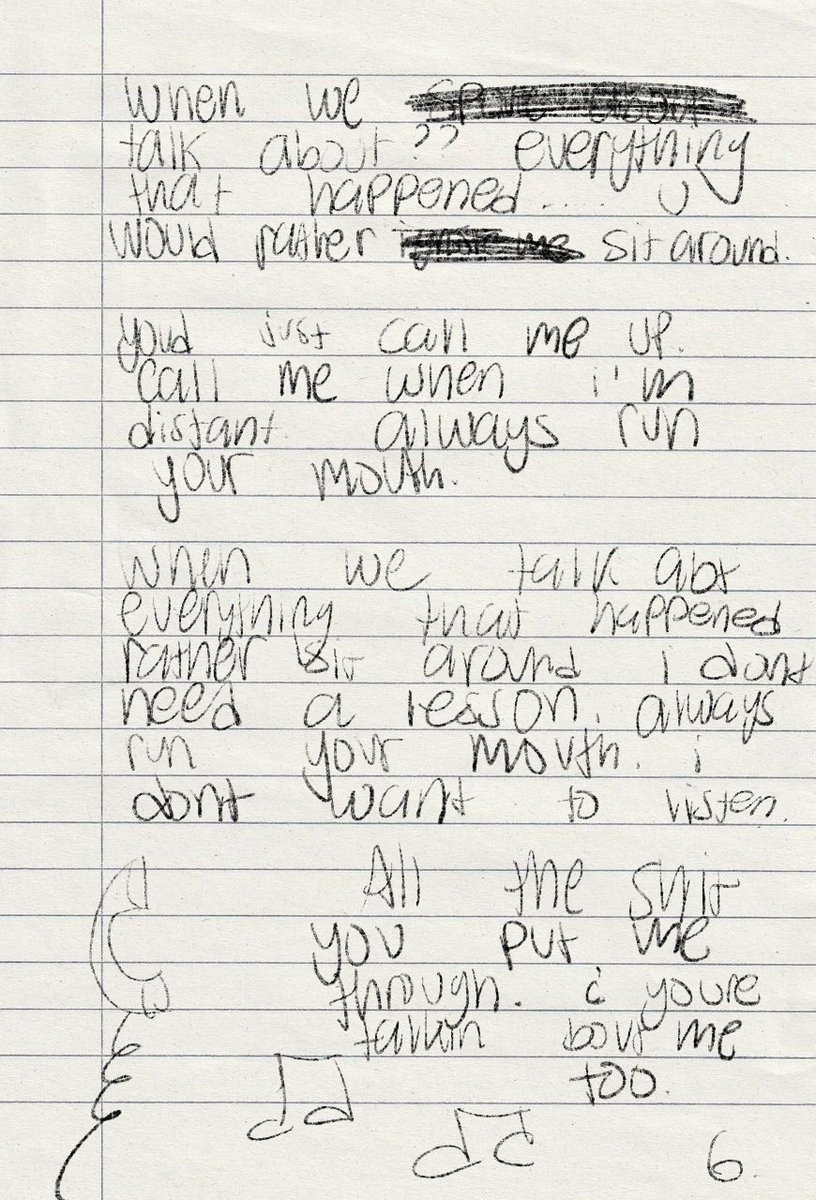 when we
talk about?? everything
that happened.... U
would rather sit around.
youd just call me up.
call me when i'm
distant. always run
your mouth.
when we talk abt
everything that happened
rather sit around i dont
need a lesson. always
run your mouth. i
dont want to listen.
All the shit
you put me
through. & youre
talkin bout me
too.
6.